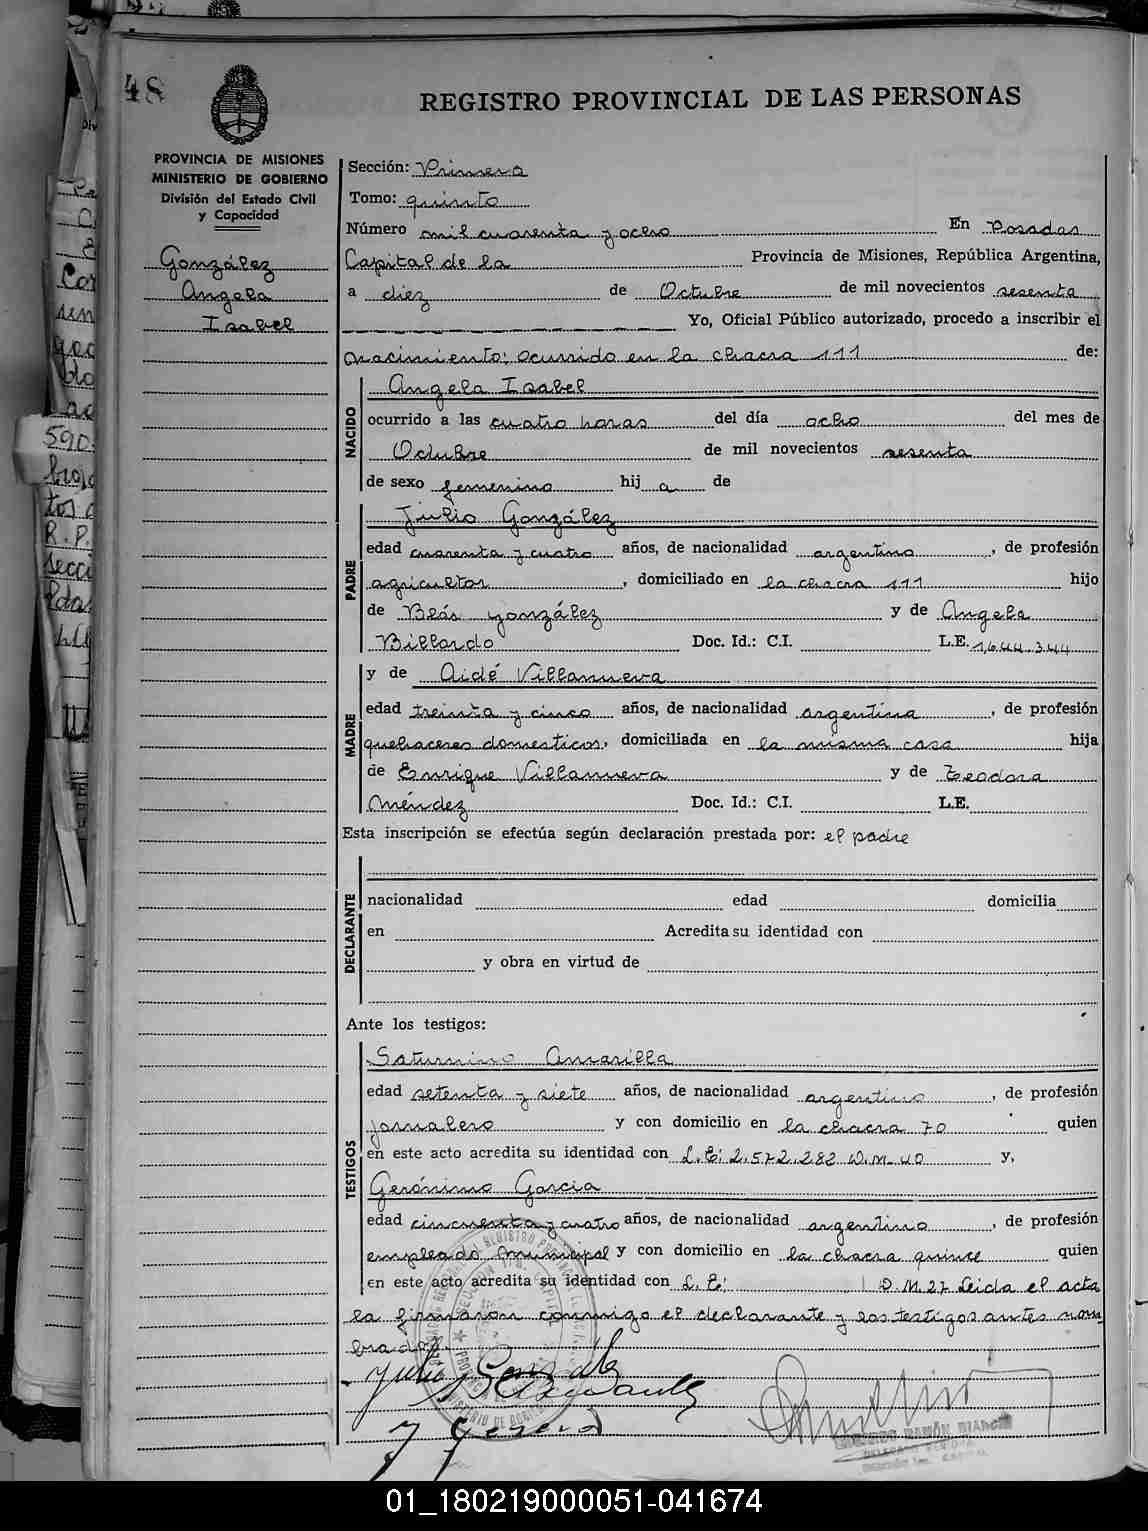 48
REGISTRO PROVINCIAL DE LAS PERSONAS
PROVINCIA DE MISIONES
MINISTERIO DE GOBIERNO
División del Estado Civil
y Capacidad
González
Angela
Isabel
Sección: Primera
Tomo: quinto
Número mil cuarenta y ocho En Posadas
Capital de la Provincia de Misiones, República Argentina,
a diez de Octubre de mil novecientos sesenta
Yo, Oficial Público autorizado, procedo a inscribir el
nacimiento: ocurrido en la chacra 111 de:
NACIDO
Angela Isabel
ocurrido a las cuatro horas del día ocho del mes de
Octubre de mil novecientos sesenta
de sexo femenino hij a de
PADRE
Julio González
edad cuarenta y cuatro años, de nacionalidad argentino, de profesión
agricultor, domiciliado en la chacra 111 hijo
de Blás González y de Angela
Billordo Doc. Id.: C.I. L.E. 1.644.344
MADRE
y de Aidé Villanueva
edad treinta y cinco años, de nacionalidad argentina, de profesión
quehaceres domesticos, domiciliada en la misma casa hija
de Enrique Villanueva y de Teodora
Méndez Doc. Id.: C.I. L.E.
Esta inscripción se efectúa según declaración prestada por: el padre
DECLARANTE
nacionalidad edad domicilia
en Acredita su identidad con
y obra en virtud de
Ante los testigos:
TESTIGOS
Saturnino Amarilla
edad setenta y siete años, de nacionalidad argentino, de profesión
jornalero y con domicilio en la chacra 70 quien
en este acto acredita su identidad con L.E: 2.572.282 D.M. 40 y,
Gerónimo Garcia
edad cincuenta y cuatro años, de nacionalidad argentino, de profesión
empleado municipal y con domicilio en la chacra quince quien
en este acto acredita su identidad con L.E: D.M.27 Leida el acta
la firmaron conmigo el declarante y los testigos antes nom-
brados.
Julio Gonzalez
01_180219000051-041674